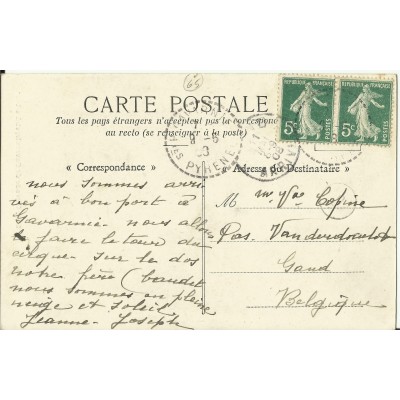 65
CARTE POSTALE
Tous les pays étrangers n'acceptent pas la correspondance
au recto (se renseigner à la poste)
REPUBLIQUE FRANÇAISE
5c POSTES
REPUBLIQUE FRANÇAISE
5c POSTES
Htes PYRENEES
« Correspondance »
« Adresse du Destinataire »
nous sommes arri-
vés à bon port à
Gavarnie nous allons
faire le tour du
cirque sur le dos
notre frère baudet
nous sommes en pleine
neige et soleil
Jeanne - Joseph
M me Vve Copine
Pas.
Gand
Belgique